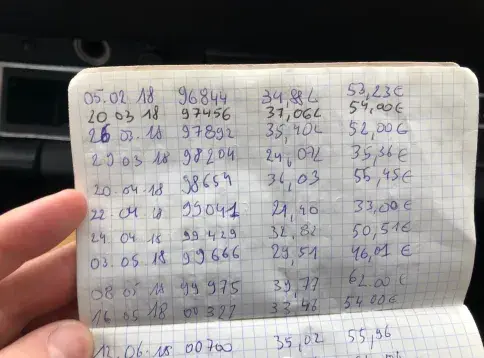 05.02 18 96844 34,88L 53,23€
20 03 18 97456 37,06L 54,00€
26 03.18 97892 35,40L 52,00€
29 03 18 98204 24,07L 35,36€
20.04.18 98654 36,03 55,45€
22 04 18 99041 21,40 33,00€
24 04 18 99429 32,82 50,51€
03.05 18 99666 29,51 46,01€
08 05 18 99975 39,77 62.00€
16 05 18 00327 33,46 54.00€
12.06.18 00700 35,02 55,96